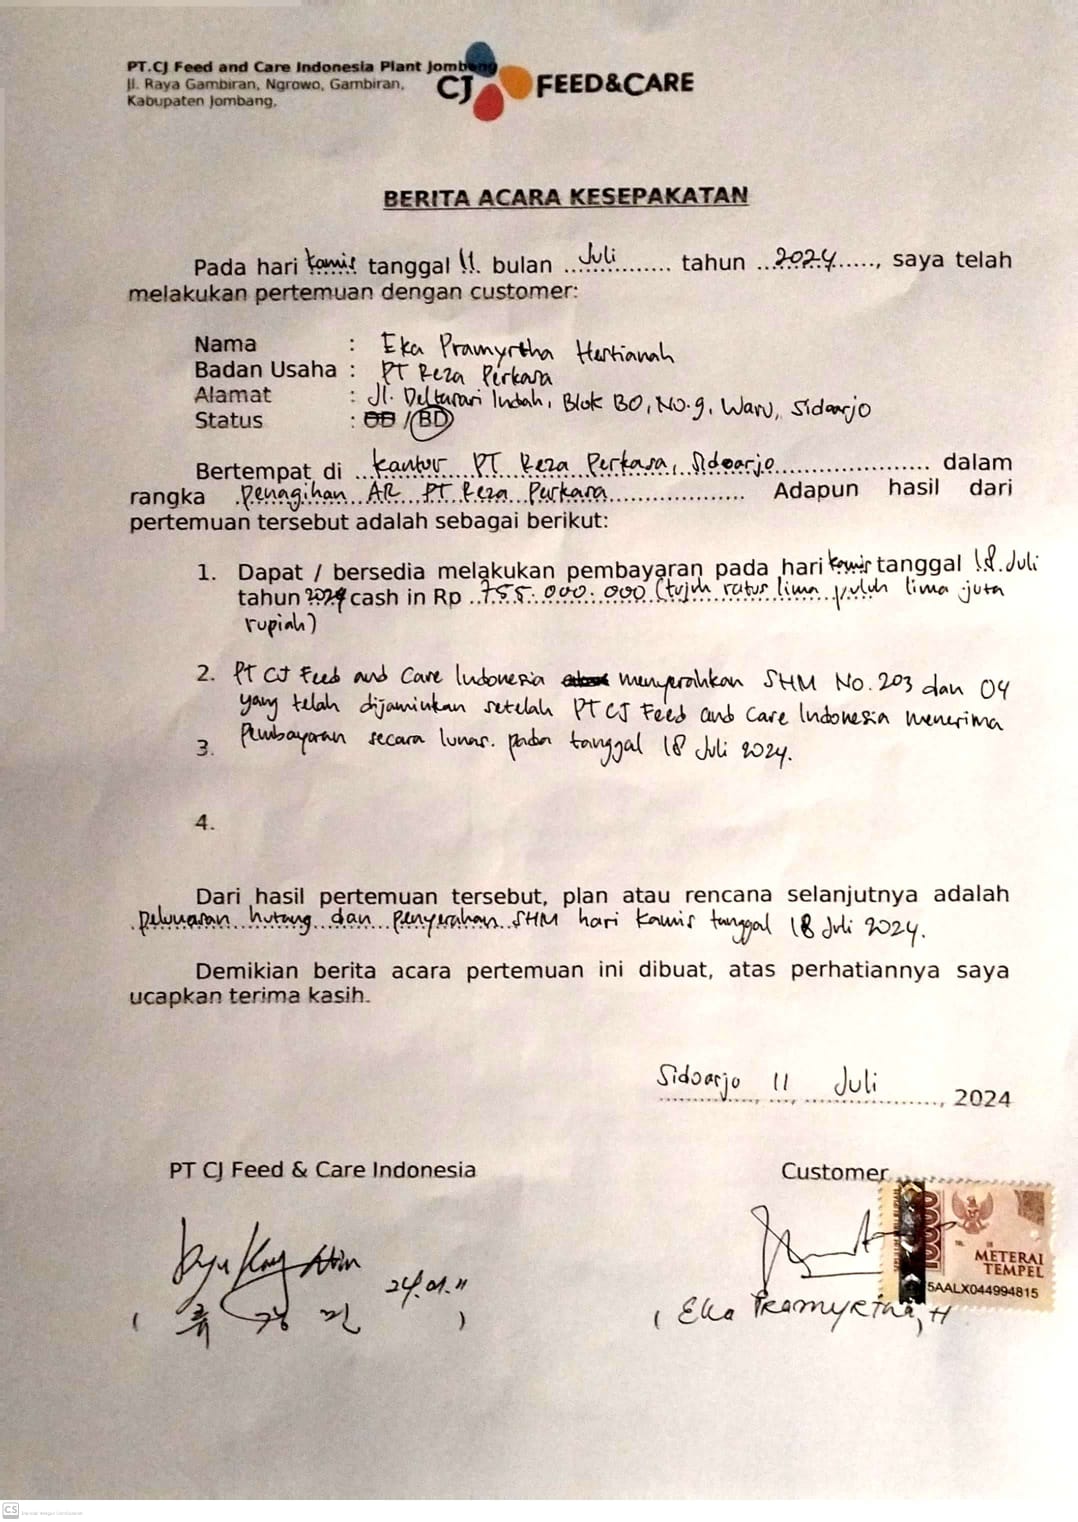 PT.CJ Feed and Care Indonesia Plant Jombang
Jl. Raya Gambiran, Ngrowo, Gambiran,
Kabupaten Jombang,
CJ FEED&CARE
BERITA ACARA KESEPAKATAN
Pada hari kamis tanggal 11. bulan ...Juli... tahun ...2024..., saya telah
melakukan pertemuan dengan customer:
Nama : Eka Pramyrtha Hertianah
Badan Usaha : PT Reza Perkasa
Alamat : Jl. Deltasari Indah, Blok BO, No.9, Waru, Sidoarjo
Status : / BD
Bertempat di ...kantor PT Reza Perkasa, Sidoarjo... dalam
rangka ...Penagihan AR PT Reza Perkasa... Adapun hasil dari
pertemuan tersebut adalah sebagai berikut:
1. Dapat / bersedia melakukan pembayaran pada hari kamis tanggal 18. Juli
tahun 2024 cash in Rp ..755.000.000 (tujuh ratus lima puluh lima juta
rupiah)
2. PT CJ Feed and Care Indonesia menyerahkan SHM No. 203 dan 04
yang telah dijaminkan setelah PT CJ Feed and Care Indonesia menerima
Pembayaran secara lunas. pada tanggal 18 Juli 2024.
3.
4.
Dari hasil pertemuan tersebut, plan atau rencana selanjutnya adalah
.pelunasan hutang dan penyerahan SHM hari Kamis tanggal 18 Juli 2024.
Demikian berita acara pertemuan ini dibuat, atas perhatiannya saya
ucapkan terima kasih.
Sidoarjo 11 Juli, 2024
PT CJ Feed & Care Indonesia Customer
METERAI
TEMPEL
5AALX044994815
10000
( 류 강 민 )
( Eka Pramyrtha, H
CS